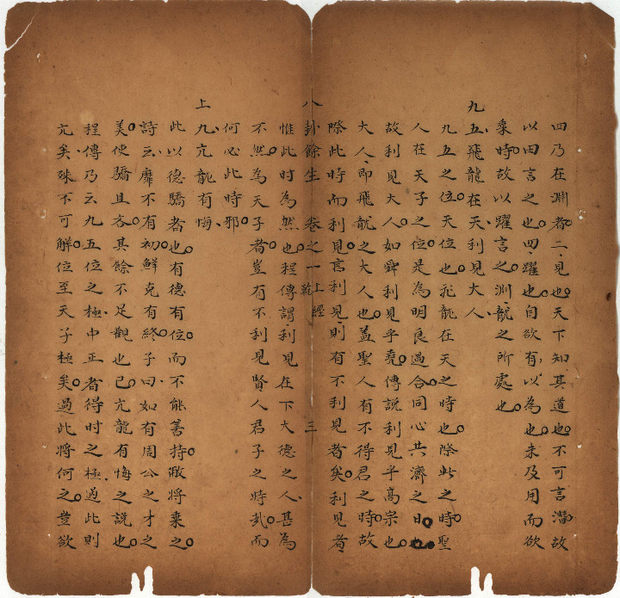 四乃在淵者二見也天下知其道也不可言潛故
以田言之也四躍也自欲有以為也未及用而欲
乘時故以躍言之淵龍之所處也
九五飛龍在天利見大人
九五之位天位也飛龍在天之時也際此之時聖
人在天子之位是為明良遇合同心共濟之日也
故利見大人如舜利見乎堯傅說利見乎高宗也
大人即飛龍之大人也蓋聖人有不得君之時故
際此時而利見言利見則有不利見者矣利見者
八卦餘生 卷之一 上經 乾 三
惟此時為然也程傳謂利見在下大德之人甚為
不然為天子者豈有不利見賢人君子之時哉而
何必此時邪
上九亢龍有悔
此以德驕者也有德有位而不能善持敬將棄之
詩云靡不有初鮮克有終子曰如有周公之才之
美使驕且吝其餘不足觀也已亢龍有悔之說也
程傳乃云九五位之極中正者得時之極過此則
亢矣殊不可解位至天子極矣過此將何之豈欲